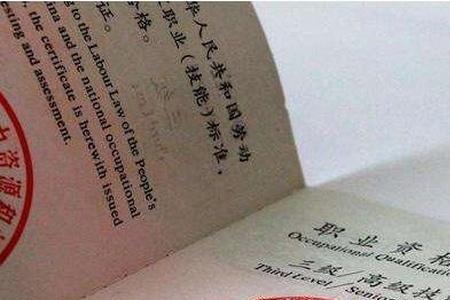 华人民共和国劳动
职业（技能）标准，
格。
证。
to the Labour Law of the People's
and the national occupational
and assessment.
the certificate is herewith issued
力资源
职业资格
Occupational Qualificati
三级／高级技
Third Level／Senio